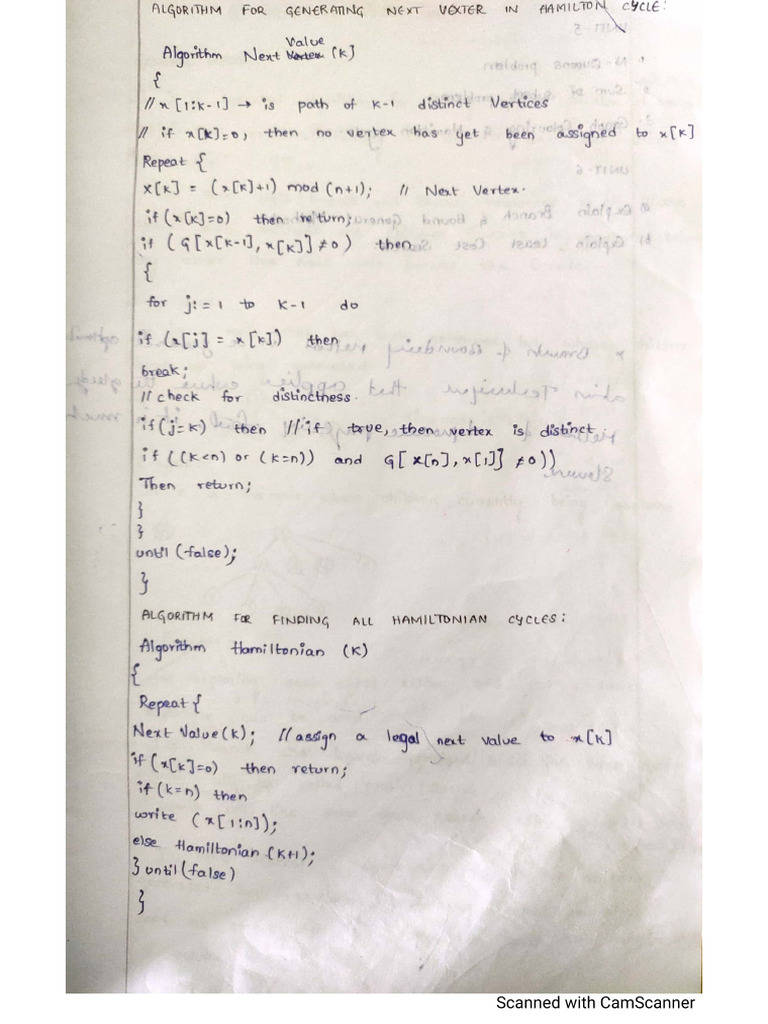 ALGORITHM FOR GENERATING NEXT VEXTER IN HAMILTON CYCLE:
Value
Algorithm Next Vertex (K)
{
// x [1:k-1] → is path of k-1 distinct Vertices
// if x[k]=0, then no vertex has yet been assigned to x[k]
Repeat {
x[k] = (x[k]+1) mod (n+1); // Next Vertex.
if (x[k]=0) then return;
if (G[x[k-1], x[k]] ≠ 0) then
{
for j:=1 to k-1 do
if (x[j] = x[k]) then
break;
// check for distinctness.
if (j=k) then // if true, then vertex is distinct
if ((k<n) or (k=n)) and G[x[n], x[1]] ≠ 0))
Then return;
}
}
until (false);
}
ALGORITHM FOR FINDING ALL HAMILTONIAN CYCLES:
Algorithm Hamiltonian (K)
{
Repeat {
Next Value(k); // assign a legal next value to x[k]
if (x[k]=0) then return;
if (k=n) then
write (x[1:n]);
else Hamiltonian (k+1);
} until (false)
}
Scanned with CamScanner